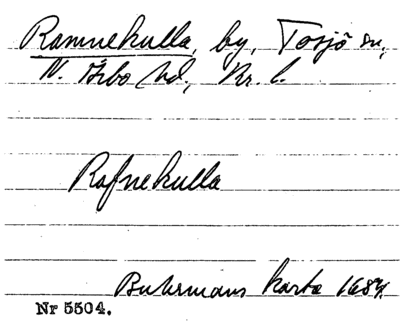 Ramnekulla, by, Tosjö sn,
N. Åsbo hd, Kr. l.
Rafnekulla
Buhrmans karta 1684.
Nr 5504.